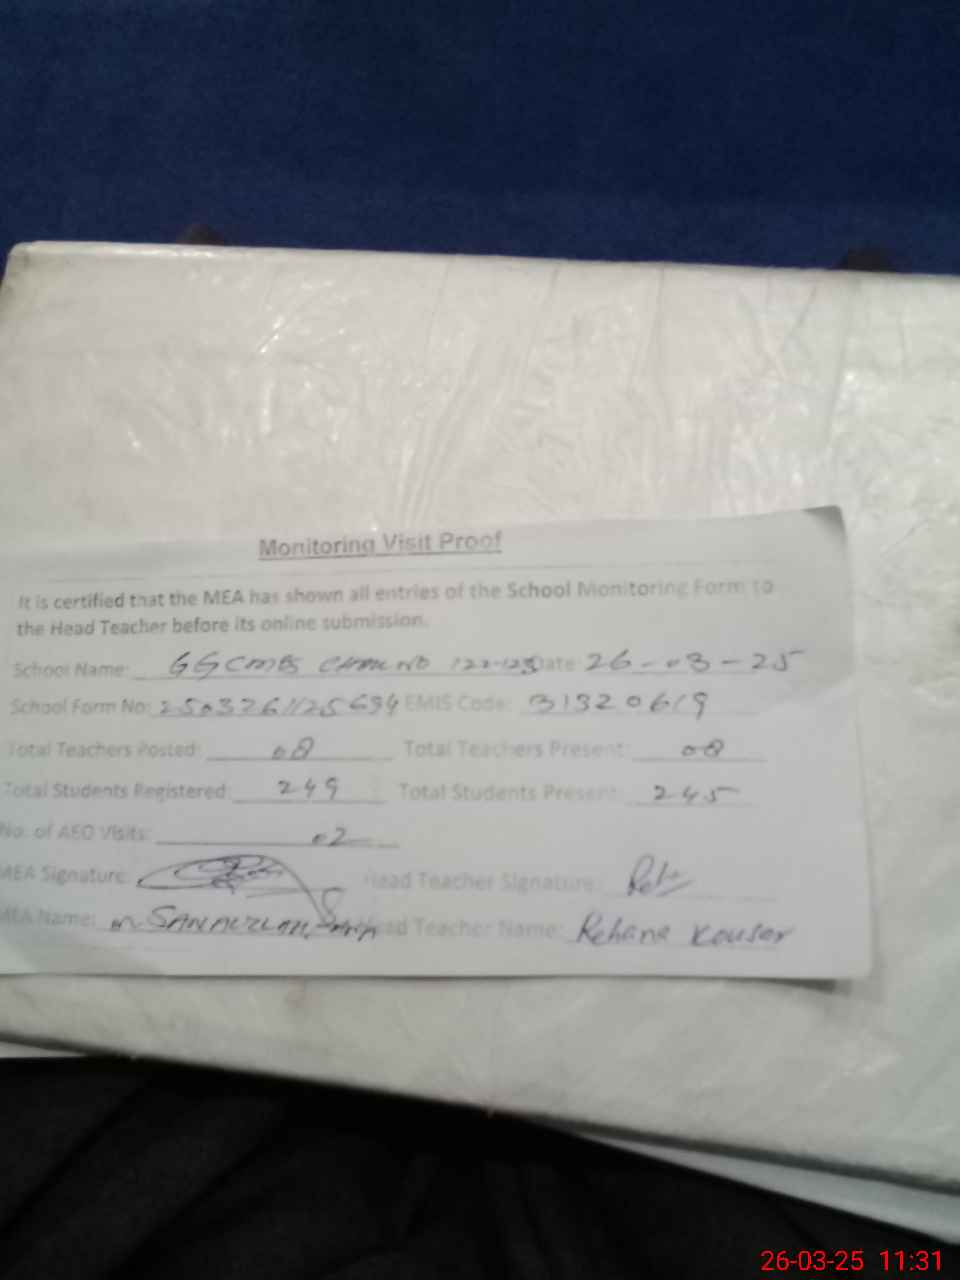 Monitoring Visit Proof
It is certified that the MEA has shown all entries of the School Monitoring Form to
the Head Teacher before its online submission.
School Name: GGCMES Date: 26-03-25
School Form No: EMIS Code: 31320619
Total Teachers Posted: 08 Total Teachers Present: 08
Total Students Registered: 249 Total Students Present: 245
No. of AEO Visits: 02
MEA Signature: Head Teacher Signature:
MEA Name: M SANAULLAH Head Teacher Name: Rehana Kousar
26-03-25 11:31